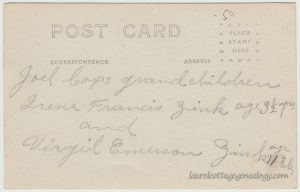 POST CARD
PLACE
STAMP
HERE
CORRESPONDENCE ADDRESS
Joel Cox's grandchildren
Irene Francis Zink age 3½ yrs
and
Virgil Emerson Zink age
laurelcottagegenealogy.com